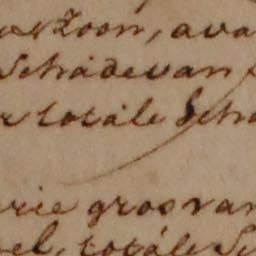 zoon, ava
Schade van
totále Scha
rie groo van
el, totále S